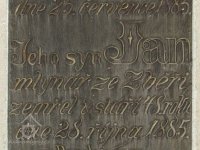 dne 25. července 1865
Jeho syn Jan
mlynář ze Zběři
zemřel v stáří
dne 28. října 1865.